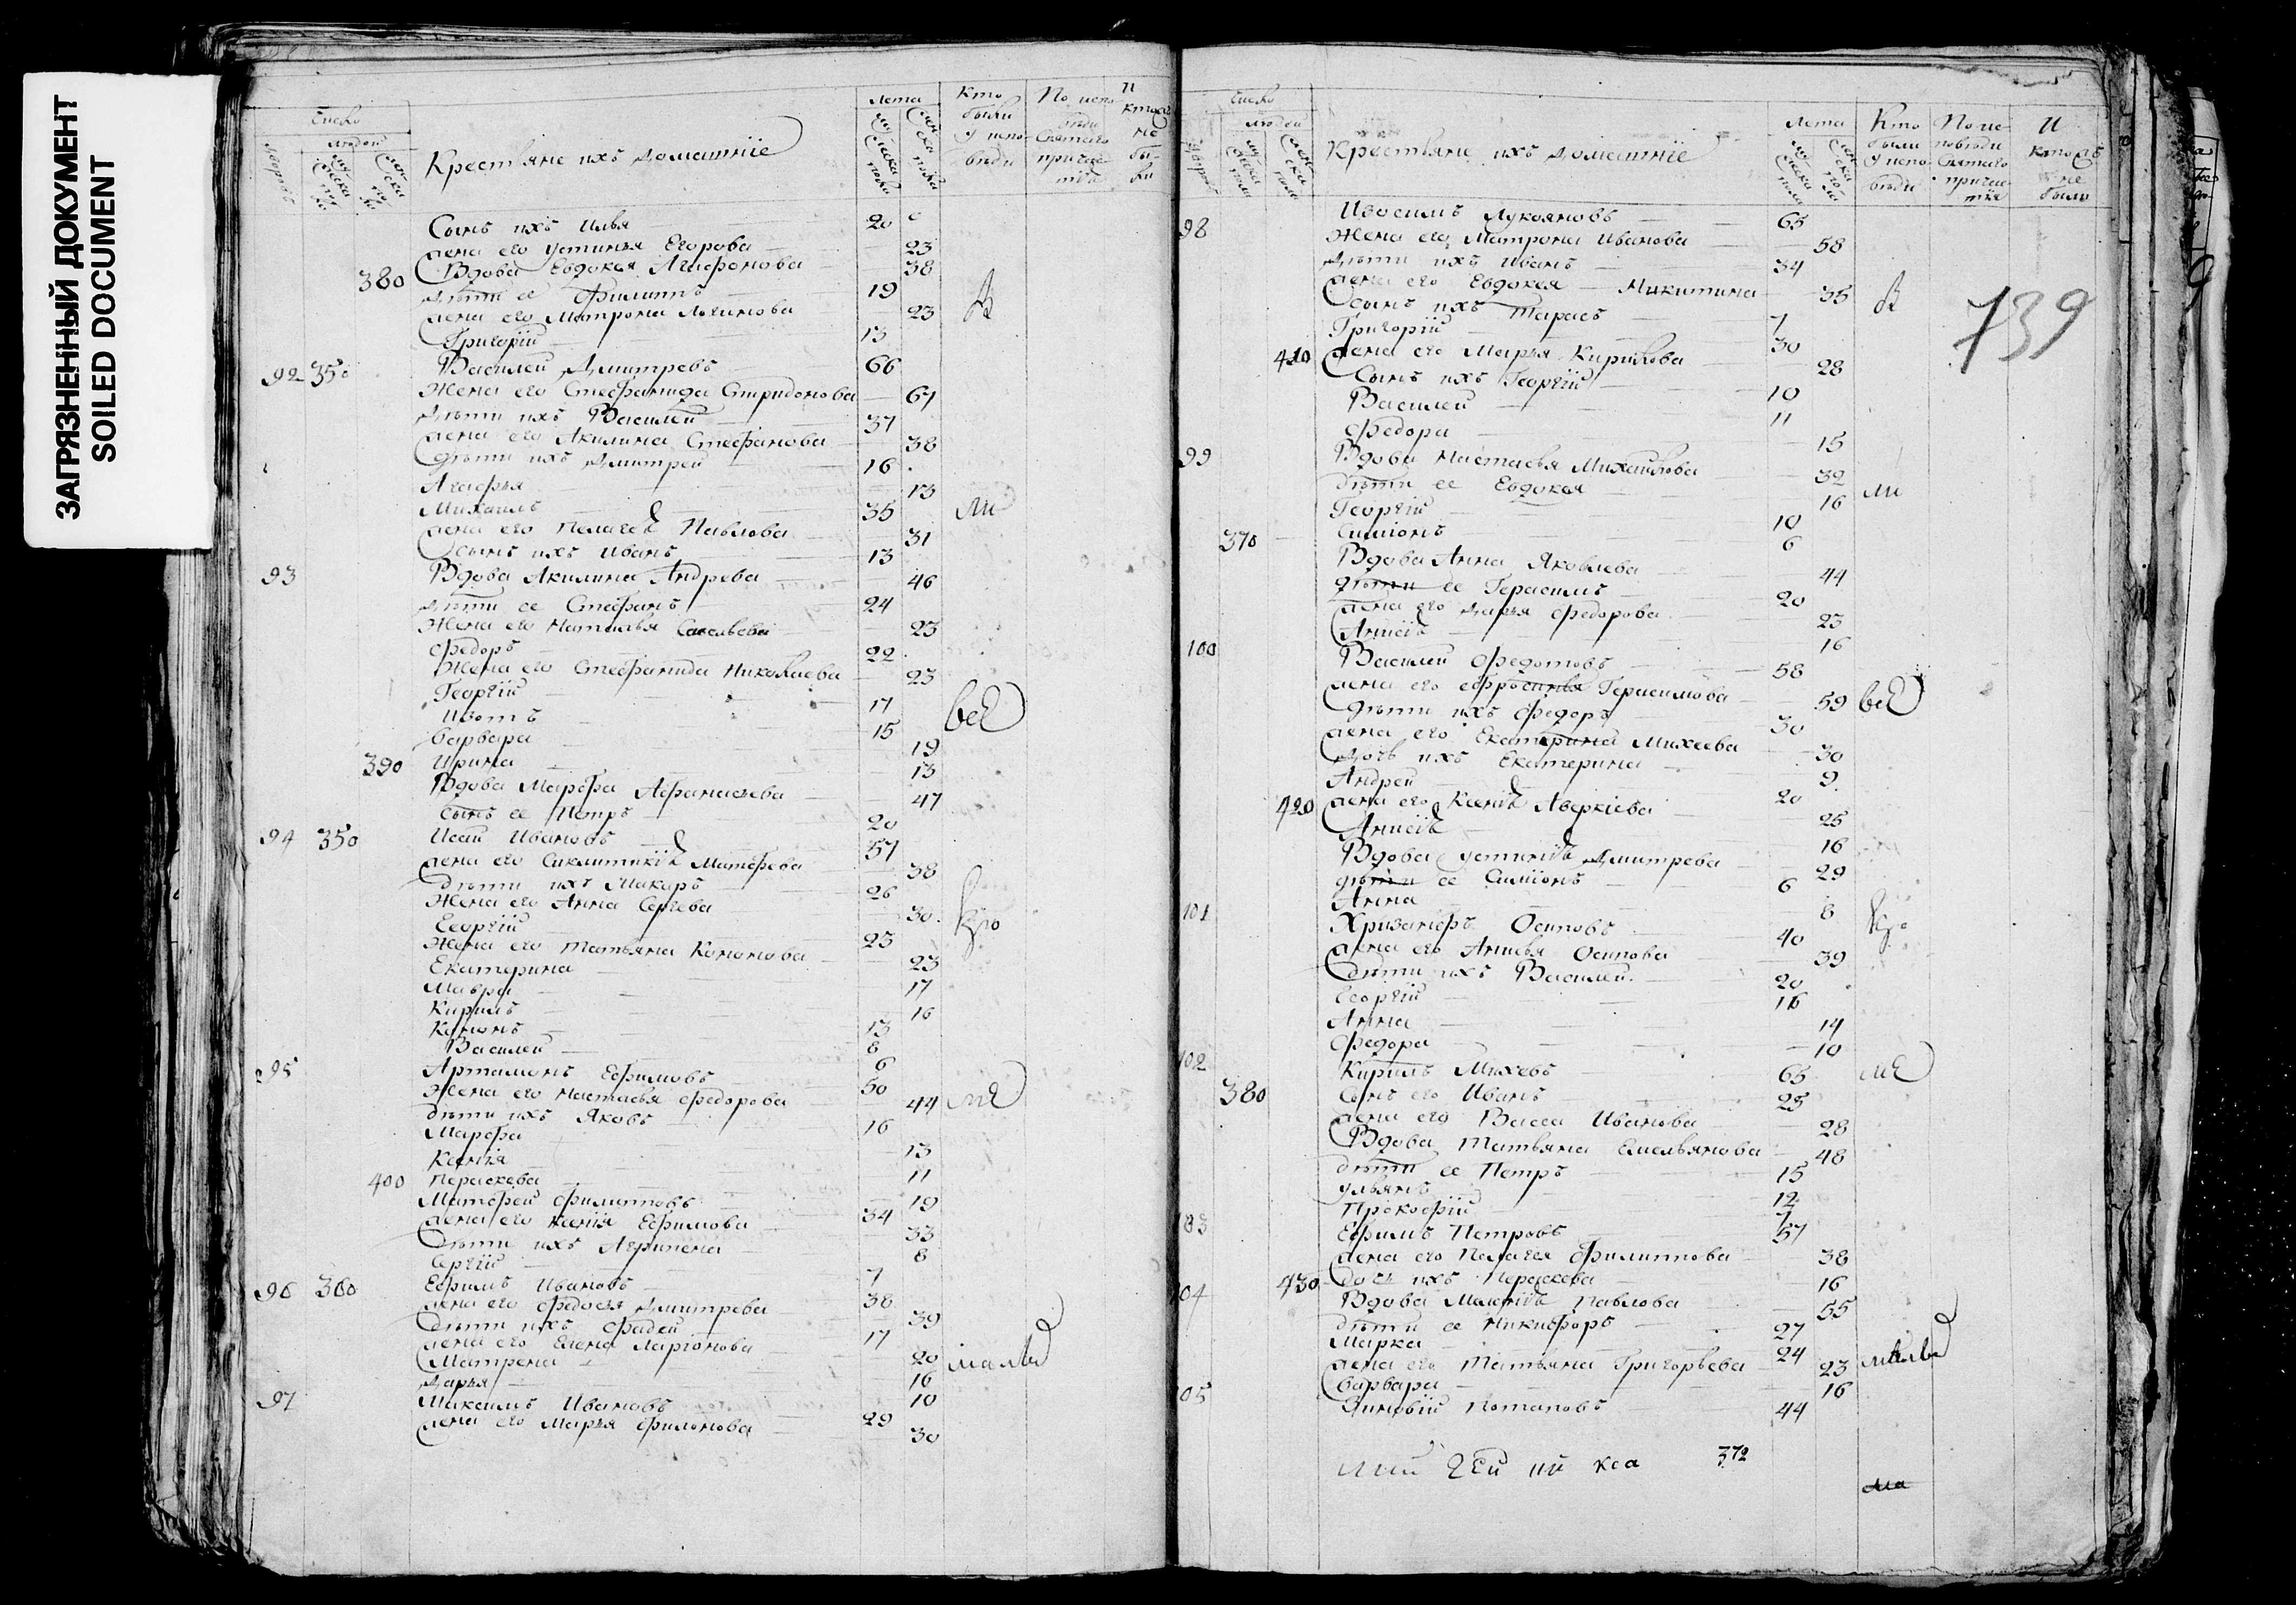 ЗАГРЯЗНЕННЫЙ ДОКУМЕНТ
SOILED DOCUMENT
Число
людей
Крестьяне ихъ домашнїе
лета
Кто были у исповѣди
Сынъ ихъ Илья 20
жена его Устинья Егорова 23
380 Вдова Евдокея Агафонова 38
дѣти ее Филиппъ 19
жена его Матрона Логинова 23
Григорїй 13
92 Василей Дмитревъ 66
Жена его Стефанида Спиридонова 67
дѣти ихъ Василей 37
жена его Акилина Стефанова 38
дѣти ихъ Дмитрей 16
Агафья 13
Михаилъ 35
жена его Пелагеѣ Павлова 31
сынъ ихъ Иванъ 13
93 Вдова Акилина Андрева 46
дѣти ее Стефанъ 24
Жена его Наталья 23
Федоръ 22
Жена его Стефанида Николаева 23
Георгїй 17
Изотъ 15
Варвара 19
390 Ирина 13
Вдова Марфа Афанасьева 47
сынъ ее Петръ 20
94 350 Исай Ивановъ 57
жена его Сиклитикїѣ Матфева 38
дѣти ихъ Макаръ 26
Жена его Анна Сергева 30
Георгїй 23
Жена его Татьяна Кононова 23
Екатерина 17
Мавра 16
Кирилъ 13
Кононъ 8
Василей 6
95 Артамонъ Ефимовъ 50
Жена его Настасья Федорова 44
дѣти ихъ Яковъ 16
Марфа 13
Ксенїя 11
400 Пераскева 19
Матфей Филиповъ 34
жена его Ксенїя Ефимова 33
дѣти ихъ Агрипена 8
Сергїй 7
96 360 Ефимъ Ивановъ 38
жена его Федосья Дмитрева 39
дѣти ихъ Фадей 17
жена его Елена Ларїонова 20
Матрена 16
Дарья 10
97 Максимъ Ивановъ 29
жена его Марья Филонова 30
Число
людей
Крестьяне ихъ домашнїе
лета
Кто были у исповѣди
739
98 Изосимъ Лукояновъ 65
Жена его Матрона Иванова 58
дѣти ихъ Иванъ 34
жена его Евдокея Микитина 35
сынъ ихъ Тарасъ 7
Григорїй 30
410 жена его Марья Кирилова 28
Сынъ ихъ Георгїй 10
Василей 11
Федора 15
99 Вдова Настасья Михаилова 32
дѣти ее Евдокея 16
Георгїй 10
370 Симїонъ 6
Вдова Анна Яковлева 44
дѣти ее Герасимъ 20
жена его Дарья Федорова 23
Анисїѣ 16
100 Василей Федотовъ 58
жена его Ефросинья Герасимова 59
дѣти ихъ Федоръ 30
жена его Екатерина Михеева 30
дочь ихъ Екатерина 9
Андрей 20
420 жена его Ксенїѣ Аверкїева 25
Анисїѣ 16
Вдова Устинїѣ Дмитрева 29
дѣти ее Симїонъ 6
Анна 8
101 Хрисанфъ Осиповъ 40
жена его Анисья Осипова 39
дѣти ихъ Василей 20
Георгїй 16
Анна 14
Федора 10
102 Кирилъ Михевъ 65
380 Сынъ его Иванъ 25
жена его Васса Иванова 28
Вдова Татьяна Емельянова 48
дѣти ее Петръ 15
Ульянъ 12
Прокофїй 7
103 Ефимъ Петровъ 57
жена его Пелагея Филиппова 38
430 дочь ихъ Пераскева 16
104 Вдова Меланїѣ Павлова 55
дѣти ее Никифоръ 27
Марка 24
жена его Татьяна Григорьева 23
Варвара 16
105 Зиновїй Потаповъ 44
372